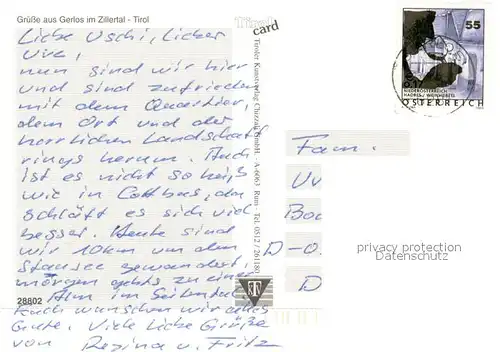 Grüße aus Gerlos im Zillertal - Tirol
Tirol
card
Liebe Uschi, lieber
Uve,
nun sind wir hier
und sind zufrieden
mit dem Quartier,
dem Ort und der
herrlichen Landschaft
rings herum. Auch
ist es nicht so heiß
wie in Cottbus, da
schläft es sich viel
besser. Heute sind
wir 10km um den
Stausee gewandert,
morgen gehts zu einer
Alm im Seitental.
Euch wünschen wir alles
Gute. Viele liebe Grüße
von Regina u. Fritz
28802
Tiroler Kunstverlag Chizzali GmbH. - A-6063 Rum - Tel. 0512 / 261180
55
NIEDERÖSTERREICH
HADRES / WEINVIERTEL
ÖSTERREICH
Fam.
Uv
D-0
D
privacy protection
Datenschutz